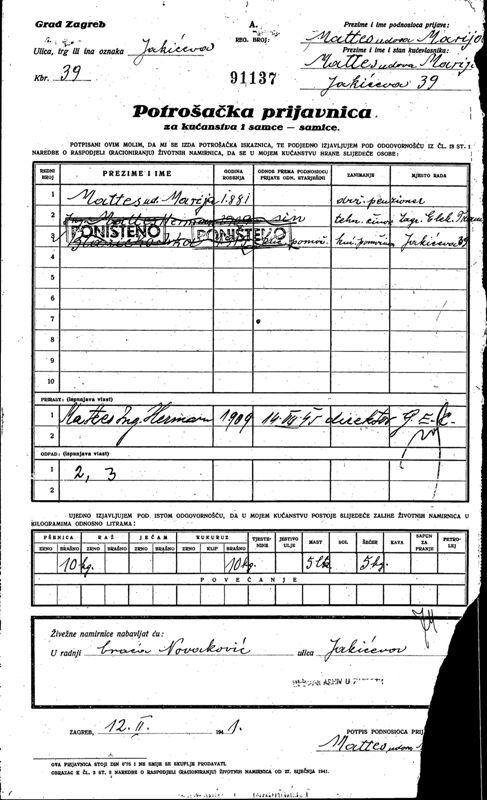 Grad Zagreb
A.
REG. BROJ:
91137
Prezime i ime podnosioca prijave:
Mattes udova Marija
Ulica, trg ili ina oznaka Jakićeva
Prezime i ime i stan kućevlasnika:
Mattes udova Marija
Kbr. 39
Jakićeva 39
Potrošačka prijavnica
za kućanstva i samce — samice.
POTPISANI OVIM MOLIM, DA MI SE IZDA POTROŠAČKA ISKAZNICA, TE PODJEDNO IZJAVLJUJEM POD ODGOVORNOŠĆU IZ ČL. 18 ST. 1
NAREDBE O RASPODJELI (RACIONIRANJU) ŽIVOTNIH NAMIRNICA, DA SE U MOJEM KUĆANSTVU HRANE SLIJEDEĆE OSOBE:
REDNI BROJ PREZIME I IME GODINA ROĐENJA ODNOS PREMA PODNOSIOCU PRIJAVE ODN. STARJEŠINI ZANIMANJE MJESTO RADA
1 Mattes ud. Marija 1881 drž. penzioner
2 Ing. Mattes Herman 1909 sin tehn. činov. Zagr. Elek. Tram
3 pomoć. kuć. pomoćnica Jakićeva 39
PONIŠTENO PONIŠTENO
4
5
6
7
8
9
10
PRIRAST: (ispunjava vlast)
1 Mattes ing. Herman 1909 14 VII 45 direktor
2
OTPAD: (ispunjava vlast)
1 2, 3
2
UJEDNO IZJAVLJUJEM POD ISTOM ODGOVORNOŠĆU, DA U MOJEM KUĆANSTVU POSTOJE SLIJEDEĆE ZALIHE ŽIVOTNIH NAMIRNICA U
KILOGRAMIMA ODNOSNO LITRAMA:
PŠENICA RAŽ JEČAM KUKURUZ TJESTENINE JESTIVO ULJE MAST SOL ŠEĆER KAVA SAPUN ZA PRANJE PETROLEJ
ZRNO BRAŠNO ZRNO BRAŠNO ZRNO BRAŠNO ZRNO KLIP BRAŠNO
10 kg. 10 kg. 5 5 kg.
POVEĆANJE
Živežne namirnice nabavljat ću:
U radnji braća Novaković ulica Jakićeva
ZAGREB, 12. II. 1941.
POTPIS PODNOSIOCA PRIJ
Mattes udova
OVA PRIJAVNICA STOJI DIN 0'75 I NE SMIJE SE SKUPLJE PRODAVATI.
OBRAZAC K ČL. 2 ST. 2 NAREDBE O RASPODJELI (RACIONIRANJU) ŽIVOTNIH NAMIRNICA OD 27. SIJEČNJA 1941.